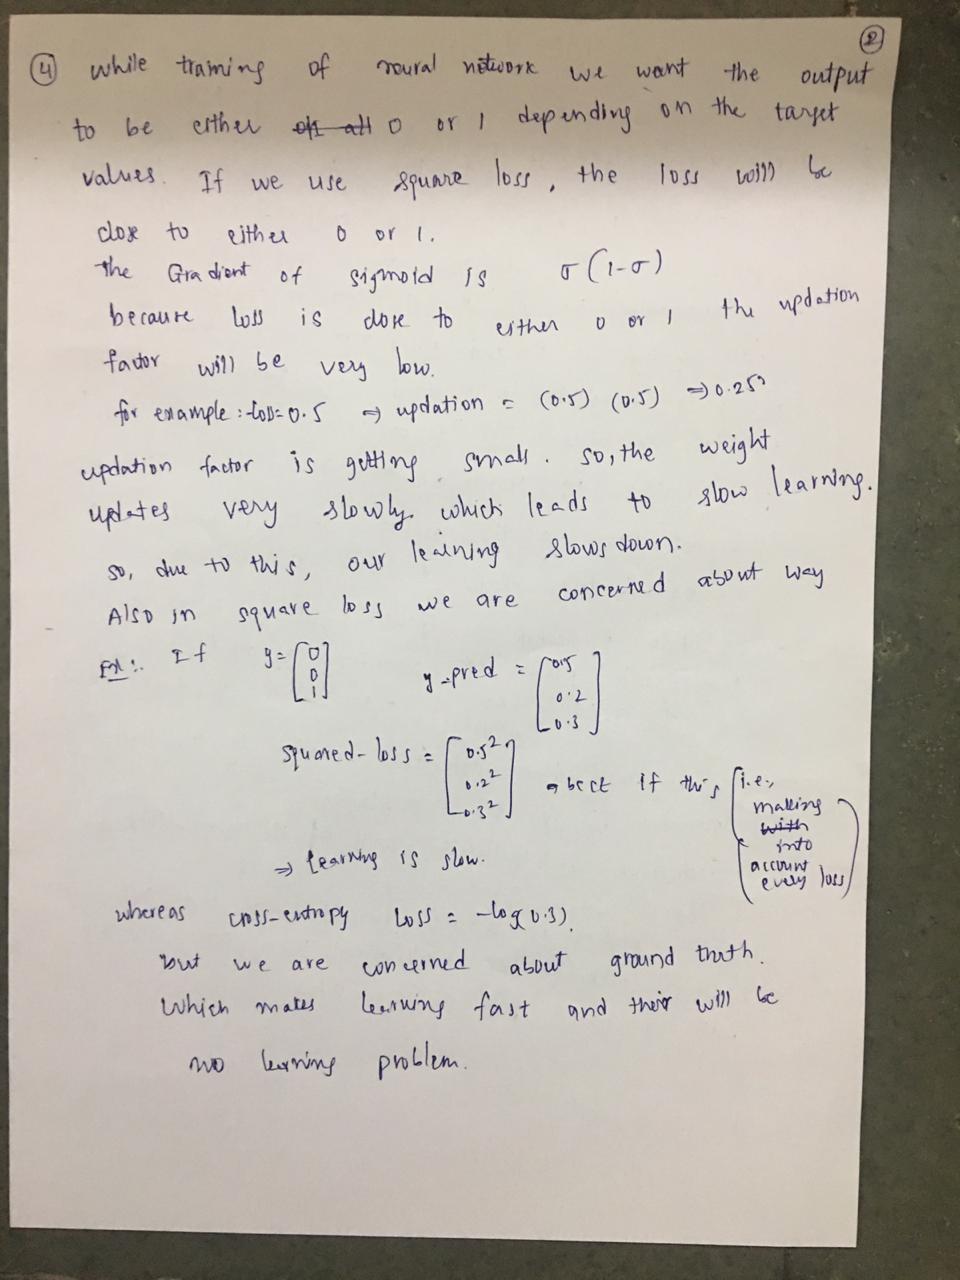 ②
④ while training of neural network we want the output
to be either 0 or 1 depending on the target
values. If we use square loss, the loss will be
close to either 0 or 1.
The Gradient of sigmoid is σ(1-σ)
because loss is close to either 0 or 1 the updation
factor will be very low.
for example :- loss=0.5 ⇒ updation = (0.5) (0.5) ⇒ 0.25
updation factor is getting small. so, the weight
updates very slowly which leads to slow learning.
so, due to this, our learning slows down.
Also in square loss we are concerned about way
Ex:. If y = [0 0 1] y_pred = [0.5 0.2 0.3]
squared-loss = [0.5² 0.2² 0.3²] if this (i.e.,
making
with
into
account
every loss)
⇒ Learning is slow.
whereas cross-entropy loss = -log(0.3).
but we are concerned about ground truth.
which makes learning fast and their will be
no learning problem.